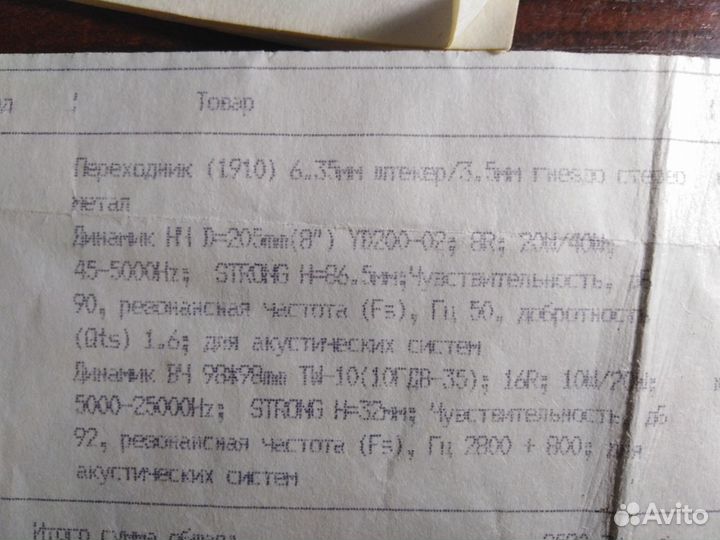 Товар
Переходник (1910) 6.35мм штекер/3.5мм гнездо стерео
метал
Динамик НЧ D=205mm(8") YD200-02; 8R; 20W/40W;
45-5000Hz; STRONG H=86.5мм;Чувствительность, дБ
90, резонансная частота (Fs), Гц 50, добротность
(Qts) 1.6; для акустических систем
Динамик ВЧ 98*98mm TW-10(10ГДВ-35); 16R; 10W/20W;
5000-25000Hz; STRONG H=32мм; Чувствительность, дБ
92, резонансная частота (Fs), Гц 2800 + 800; для
акустических систем
Итого сумма общая:
Avito